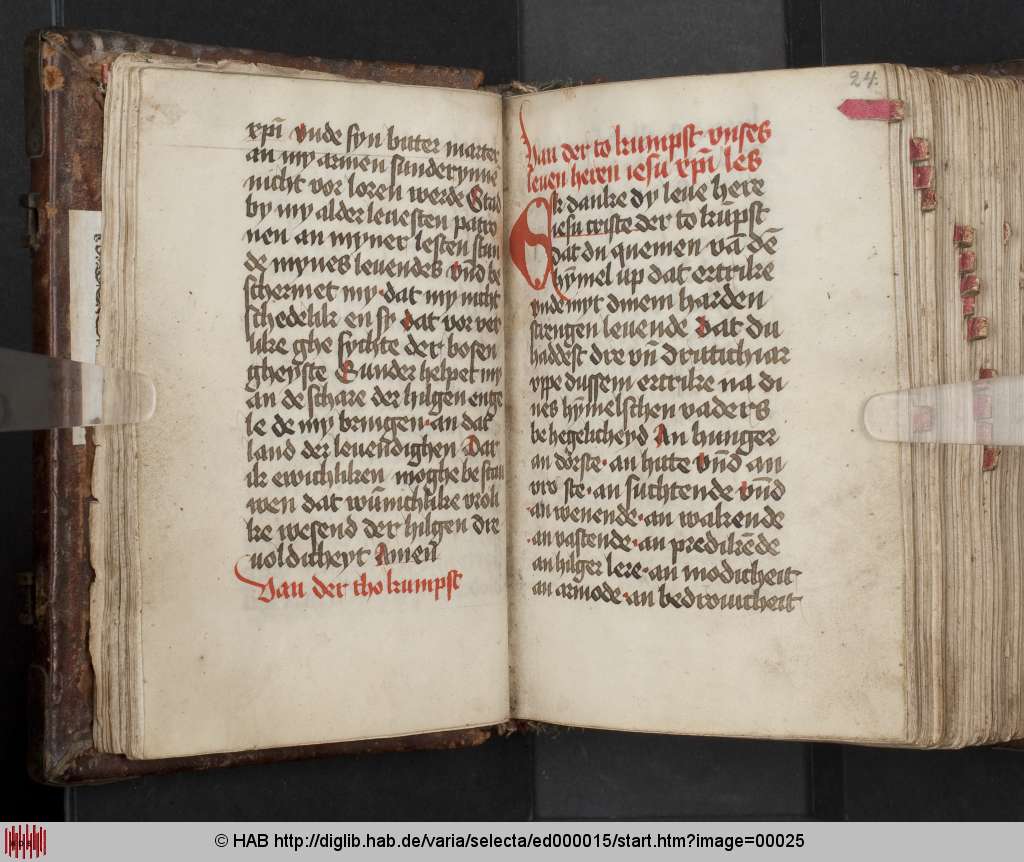 xpi vnde syn bitter marter
an my armen sunderynne
nicht vor loren werde Stad
by my alder leuesten patro
nen an myner lesten stun
de mynes leuendes vnd be
schermet my dat my nicht
schedelik en sy dat vor ver
like ghe sychte der bosen
gheyste Sunder helpet my
an de schare der hilgen enge
le de my bringen an dat
land der leuendighen Dat
ik ewichliken moghe be scau
wen dat wunichlike vroli
ke wesend der hilgen dre
uoldicheyt Amen
Van der tho kumpst
24.
Van der to kumpst vnses
leuen heren iesu xpi les
Ik danke dy leue here
iesu criste der to kupst
dat du quemen va de
hymel up dat ertrike
vnde myt dinem harden
strengen leuende Dat du
haddest dre vn druttich iar
vppe dussem ertrike na di
nes hymelschen vaders
be hegelicheyd An hunger
an dorste an hitte vnd an
vro ste an suchtende vnd
an wenende an wakende
an vastende an predikede
an hilger lere an modicheit
an armode an bedrouicheit
© HAB http://diglib.hab.de/varia/selecta/ed000015/start.htm?image=00025